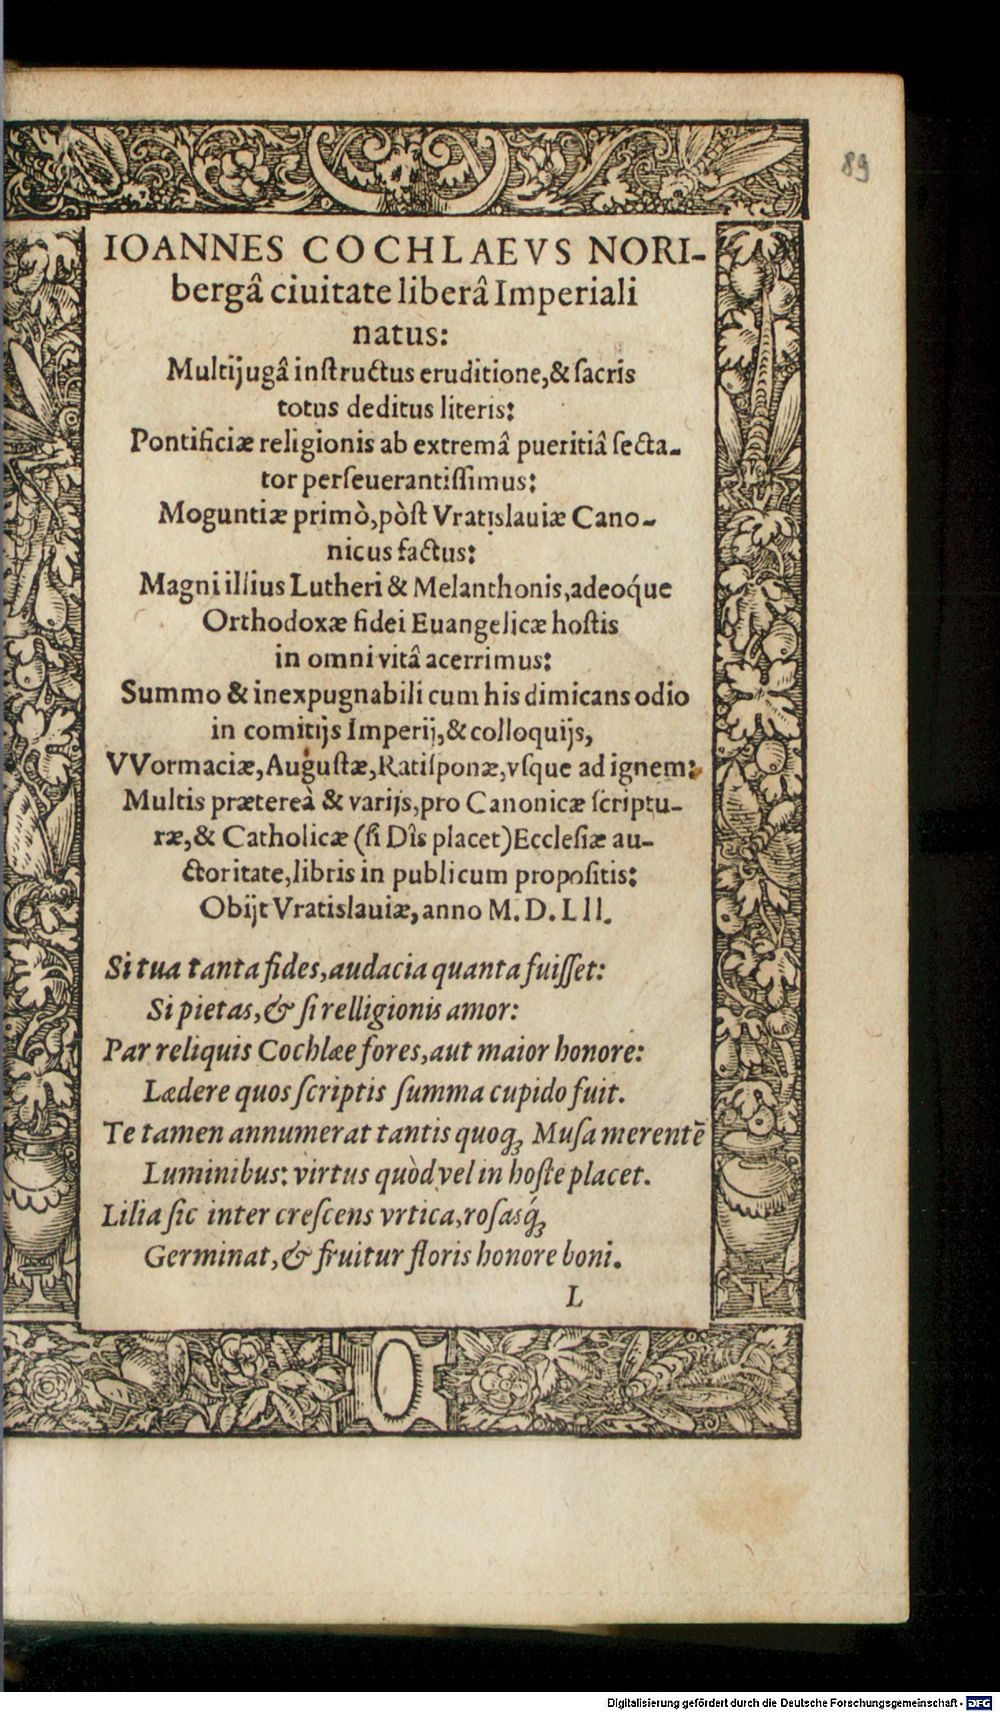 89
IOANNES COCHLAEVS NORI-
bergâ ciuitate liberâ Imperiali
natus:
Multijugâ inſtructus eruditione,& ſacris
totus deditus literis:
Pontificiæ religionis ab extremâ pueritiâ ſecta-
tor perſeuerantiſſimus:
Moguntiæ primò,pòſt Vratislauiæ Cano-
nicus factus:
Magni illius Lutheri & Melanthonis,adeoq́ue
Orthodoxæ fidei Euangelicæ hoſtis
in omni vitâ acerrimus:
Summo & inexpugnabili cum his dimicans odio
in comitijs Imperij,& colloquijs,
VVormaciæ,Auguſtæ,Ratiſponæ,vſque ad ignem:
Multis prætereà & varijs,pro Canonicæ ſcriptu-
ræ,& Catholicæ (ſi Dîs placet)Eccleſiæ au-
ctoritate,libris in publicum propoſitis:
Obijt Vratislauiæ,anno M.D.LII.
Si tua tanta fides,audacia quanta fuiſſet:
Si pietas,& ſi relligionis amor:
Par reliquis Cochlæe fores,aut maior honore:
Lædere quos ſcriptis ſumma cupido fuit.
Te tamen annumerat tantis quoqꝫ Muſa merentē
Luminibus: virtus quòd vel in hoſte placet.
Lilia ſic inter creſcens vrtica,roſasq́ꝫ
Germinat,& fruitur floris honore boni.
L
Digitalisierung gefördert durch die Deutsche Forschungsgemeinschaft - DFG